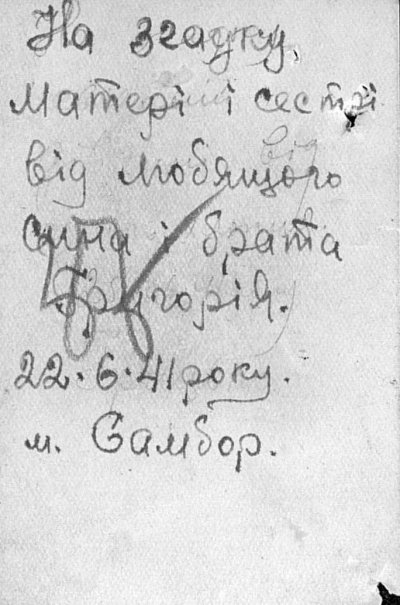 На згадку.
Матері і сестрі
від любящого
сина і брата
Григорія.
22.6.41 року.
м. Самбор.